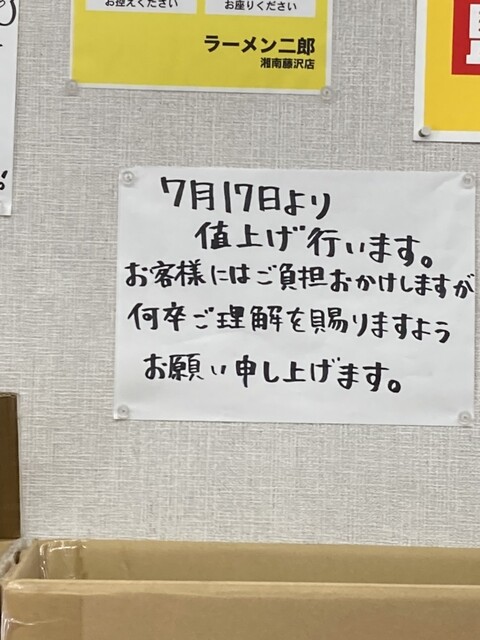 お控えください
お座りください
ラーメン二郎
湘南藤沢店
7月17日より
値上げ行います。
お客様にはご負担おかけしますが
何卒ご理解を賜りますよう
お願い申し上げます。